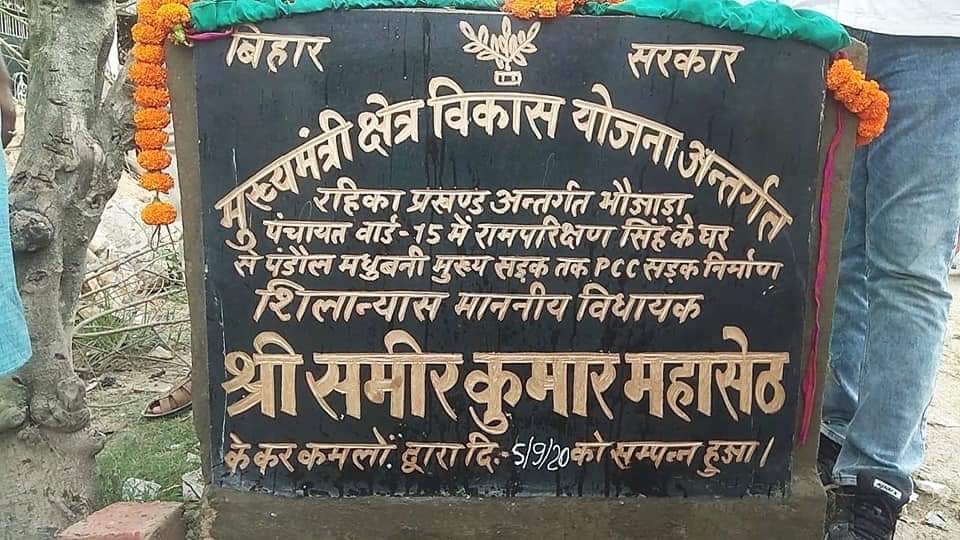 बिहार सरकार
मुख्यमंत्री क्षेत्र विकास योजना अन्तर्गत
रहिका प्रखण्ड अन्तर्गत भौआड़ा
पंचायत वार्ड-15 में रामपरिक्षण सिंह के घर
से पंडौल मधुबनी मुख्य सड़क तक PCC सड़क निर्माण
शिलान्यास माननीय विधायक
श्री समीर कुमार महासेठ
के कर कमलों द्वारा दि.-5/9/20 को सम्पन्न हुआ।